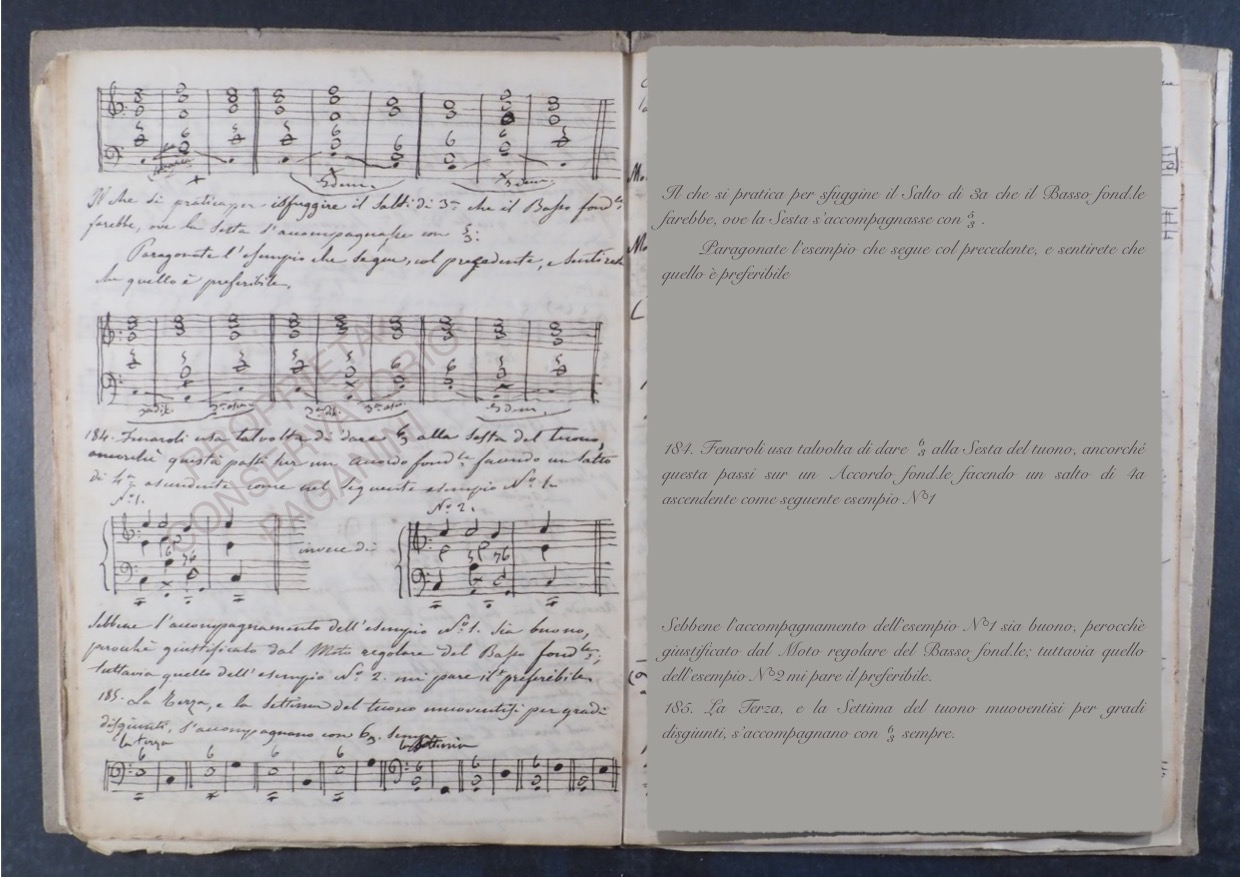 Il che si pratica per isfuggire il Salto di 3a che il Basso fond.le
farebbe, ove la Sesta s'accompagnasse con 5 3.
Paragonate l'esempio che segue, col precedente, e sentirete
che quello è preferibile.
PROPRIETA'
CONSERVATORIO
PAGANINI
184. Fenaroli usa talvolta di dare 6 3 alla Sesta del tuono,
ancorché questa passi sur un accordo fond.le facendo un salto
di 4a ascendente come nel seguente esempio No. 1.
No. 1.
No. 2.
invece di
Sebbene l'accompagnamento dell'esempio No. 1. sia buono,
perocchè giustificato dal Moto regolare del Basso fond.le;
tuttavia quello dell'esempio No. 2. mi pare il preferibile.
185. La Terza, e la Settima del tuono muoventisi per gradi
disgiunti, s'accompagnano con 6 3 sempre.
la terza
la Settima
Il che si pratica per sfuggine il Salto di 3a che il Basso fond.le
farebbe, ove la Sesta s'accompagnasse con 5 3 .
Paragonate l'esempio che segue col precedente, e sentirete che
quello è preferibile
184. Fenaroli usa talvolta di dare 6 3 alla Sesta del tuono, ancorché
questa passi sur un Accordo fond.le facendo un salto di 4a
ascendente come seguente esempio N°1
Sebbene l'accompagnamento dell'esempio N°1 sia buono, perocchè
giustificato dal Moto regolare del Basso fond.le; tuttavia quello
dell'esempio N°2 mi pare il preferibile.
185. La Terza, e la Settima del tuono muoventisi per gradi
disgiunti, s'accompagnano con 6 3 sempre.